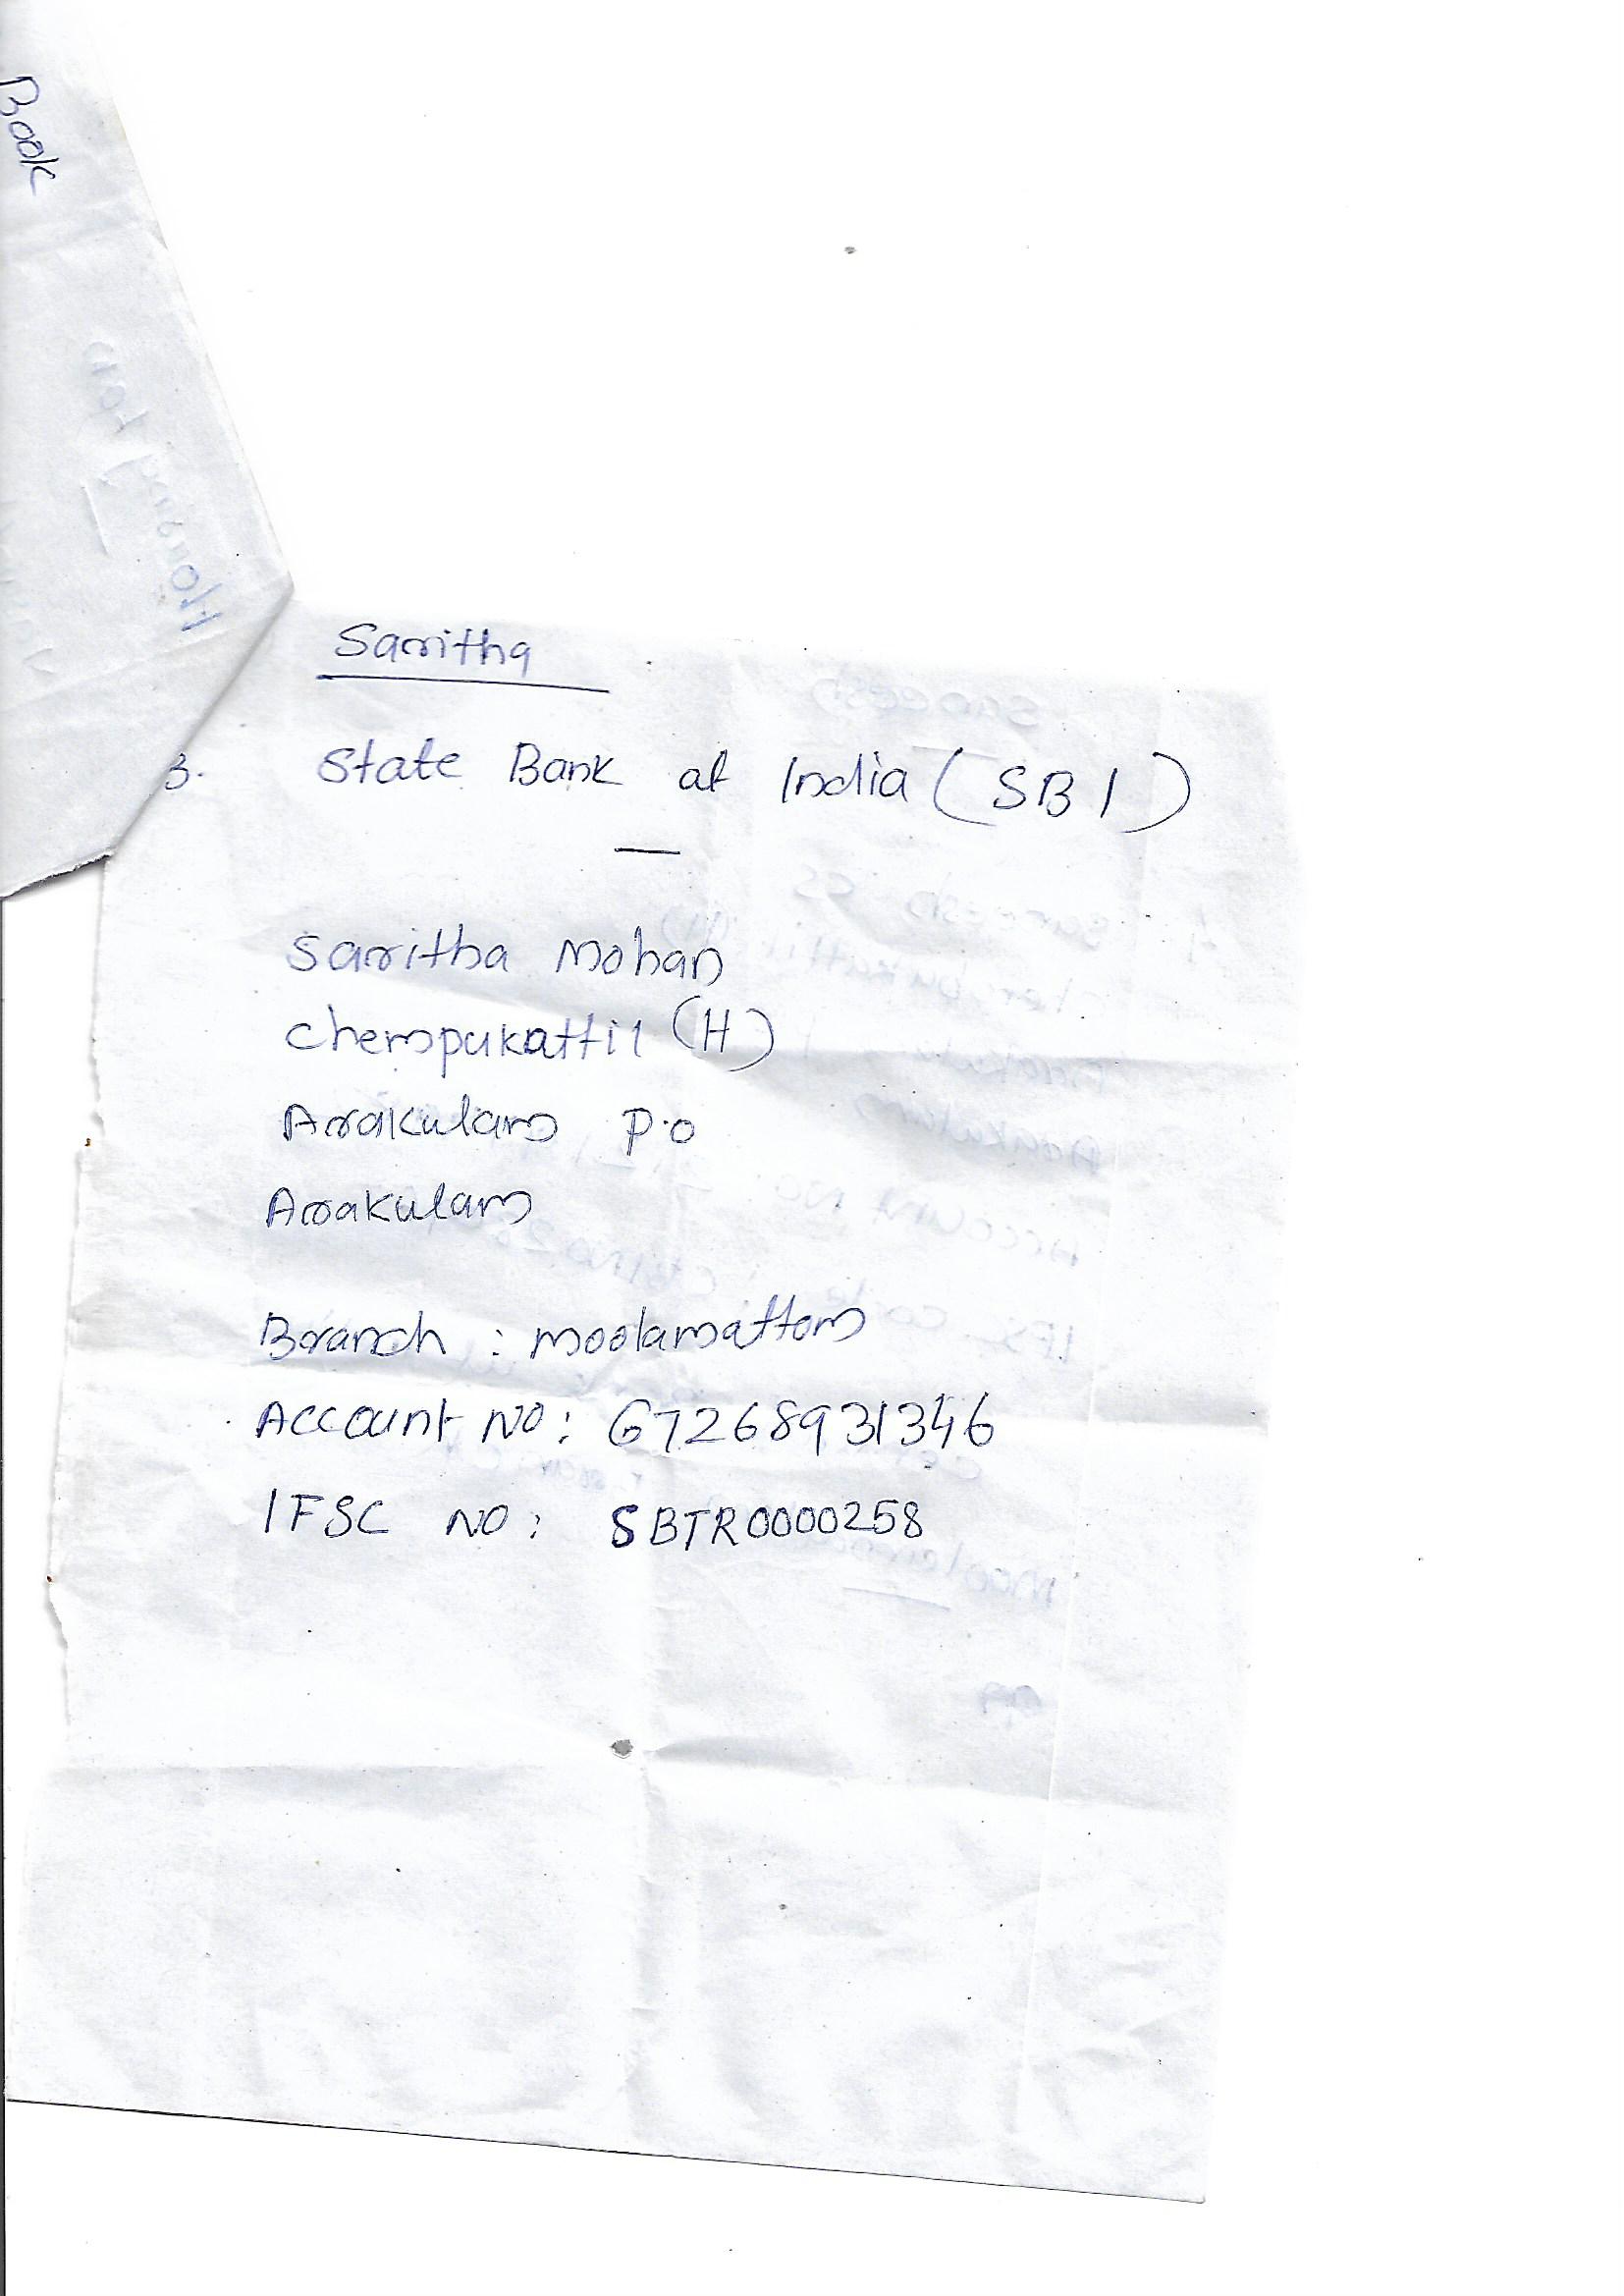 Book
Saritha
3. State Bank of India (SBI)
Saritha Mohan
Chempukattil (H)
Arakulam P.O
Arakulam
Branch : Moolamattom
Account No: 67268931346
IFSC NO: SBTR0000258